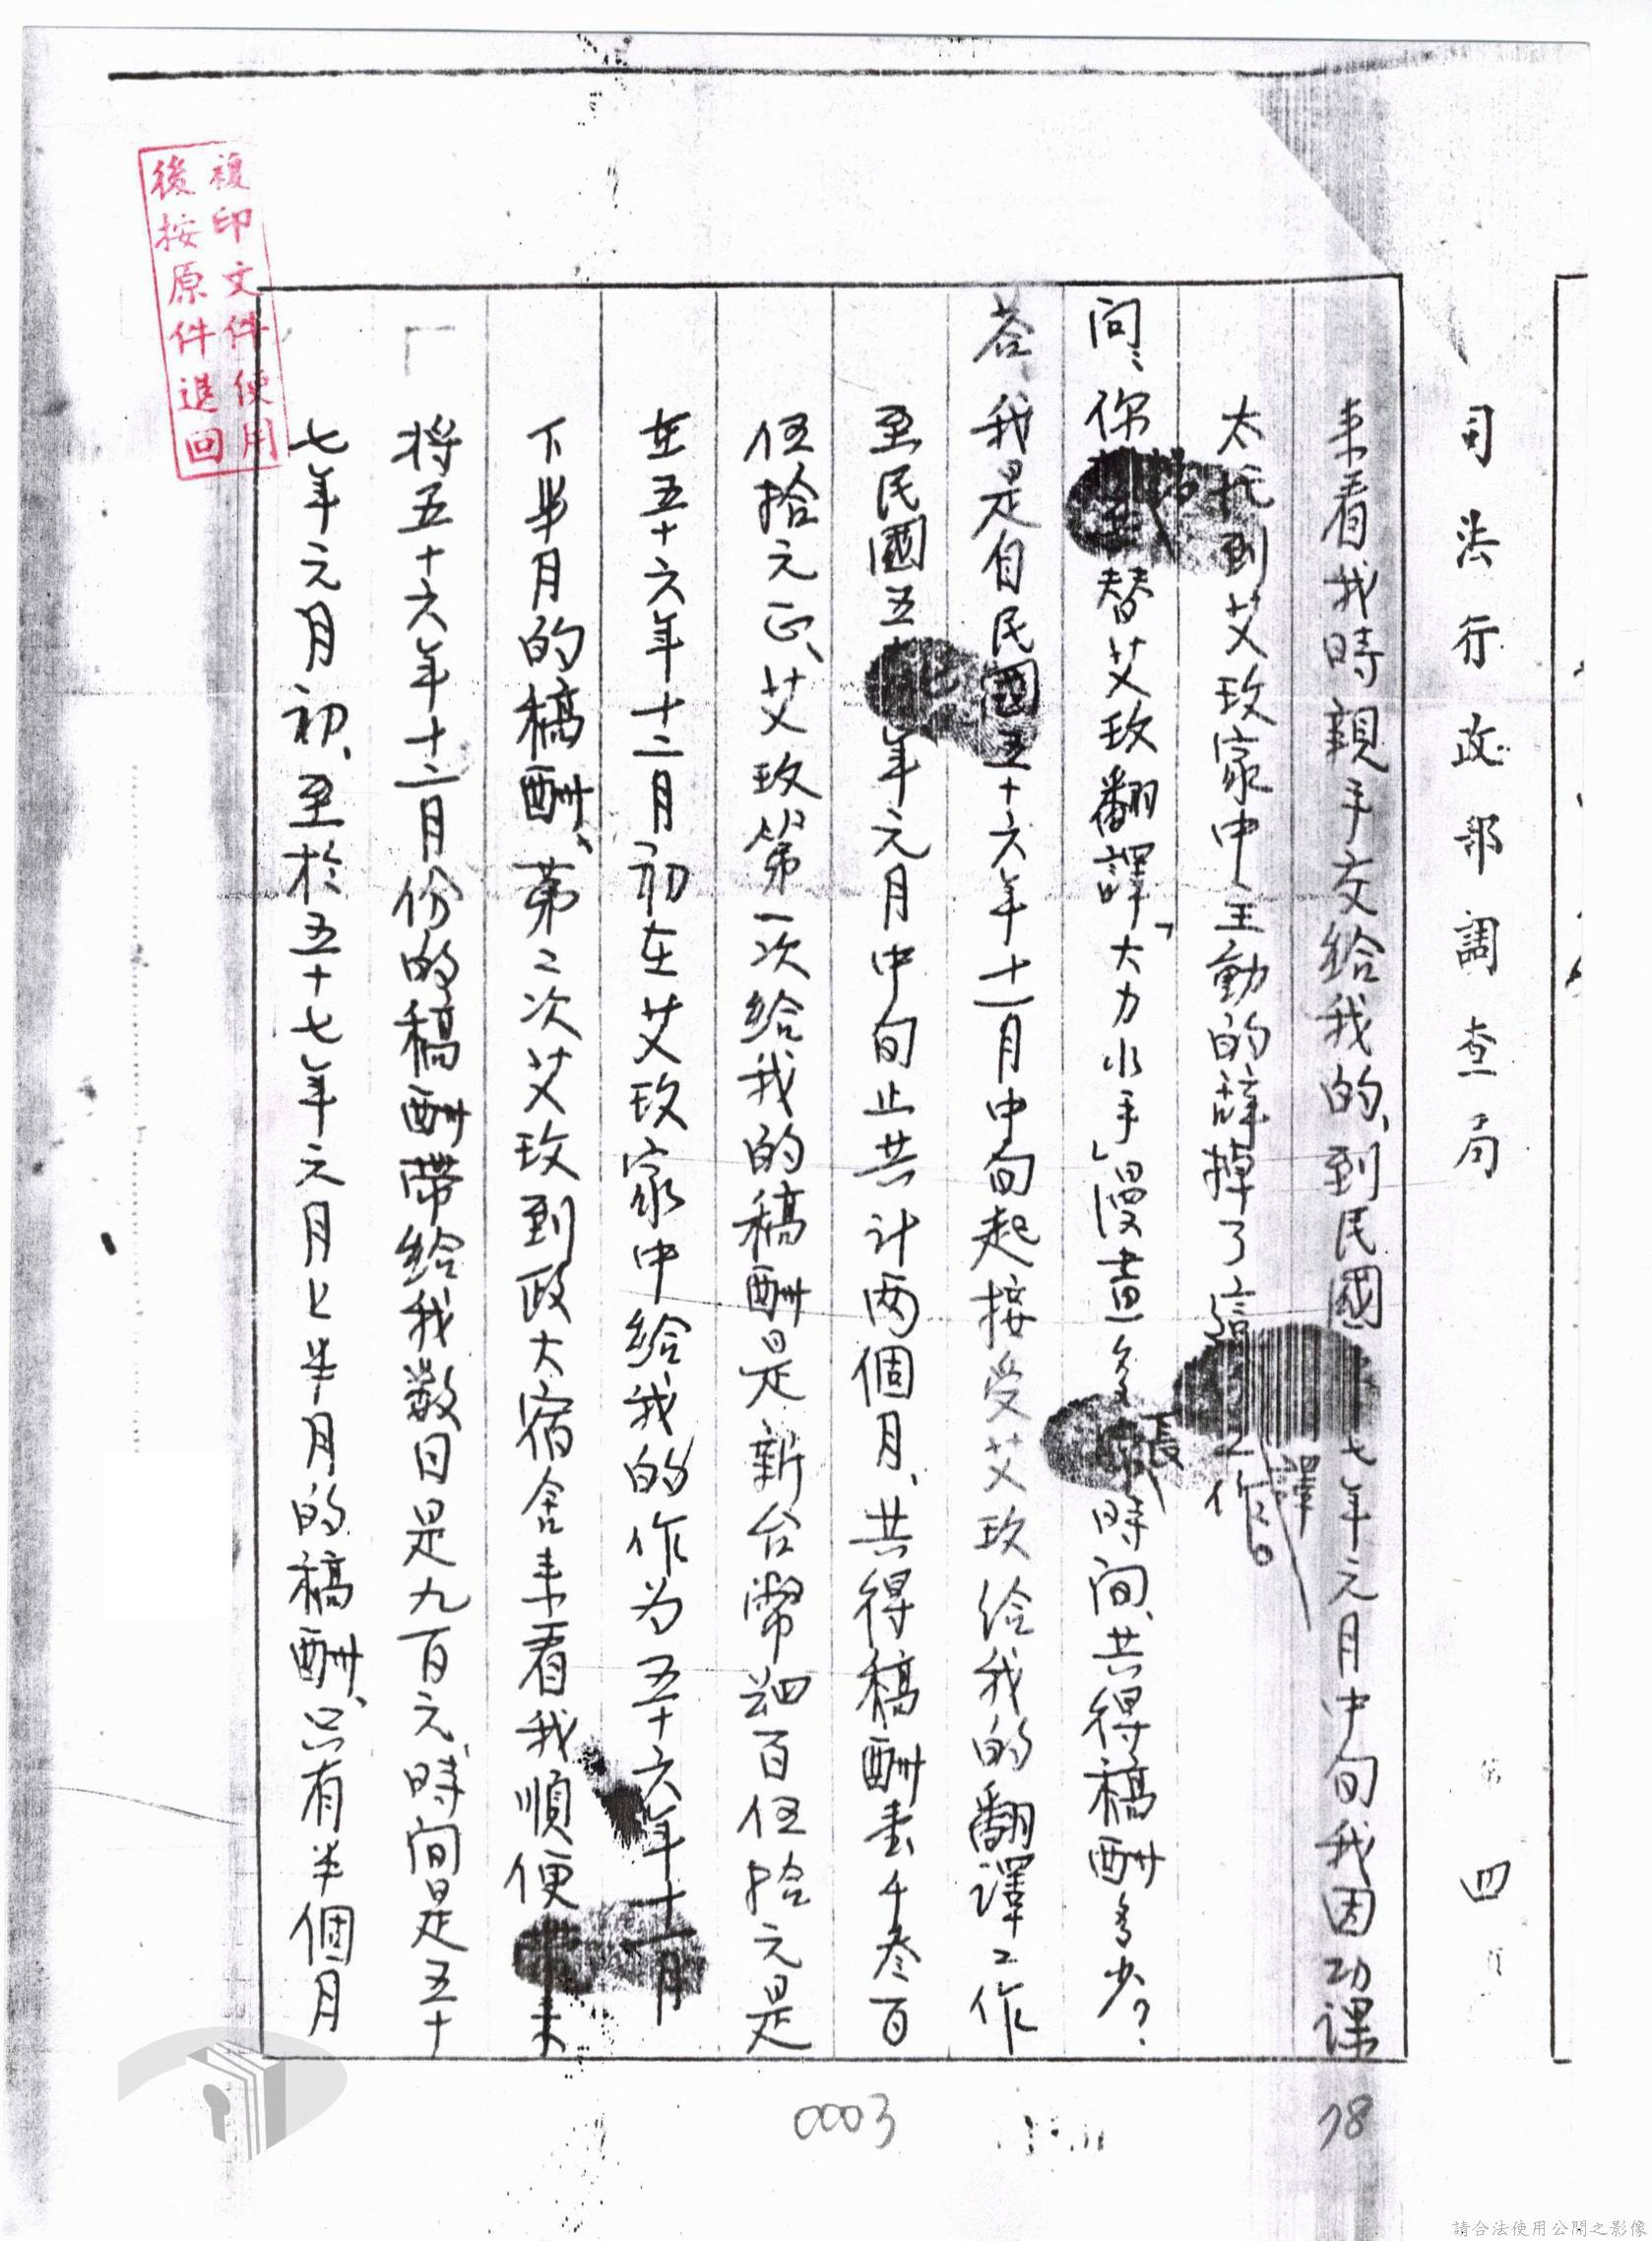 司法行政部調查局
第四頁
來看我時親手交給我的、到民國七年元月中旬我因功課
太忙到艾玫家中主動的辭掉了這譯工作。
問、你替艾玫翻譯「大力水手」漫畫多長時間、共得稿酬多少?
答、我是自民國五十六年十一月中旬起接受艾玫給我的翻譯工作
至民國五年元月中旬止共計两個月、共得稿酬壹千叁百
伍拾元正、艾玫第一次給我的稿酬是新台幣肆百伍拾元是
在五十六年十二月初在艾玫家中給我的作为五十六年十一月
下半月的稿酬、第二次艾玫到政大宿舍來看我順便帶來
将五十六年十二月份的稿酬帶給我数目是九百元、時间是五十
七年元月初、至於五十七年元月上半月的稿酬、只有半個月
複印文件使用
後按原件退回
0003
78
請合法使用公開之影像